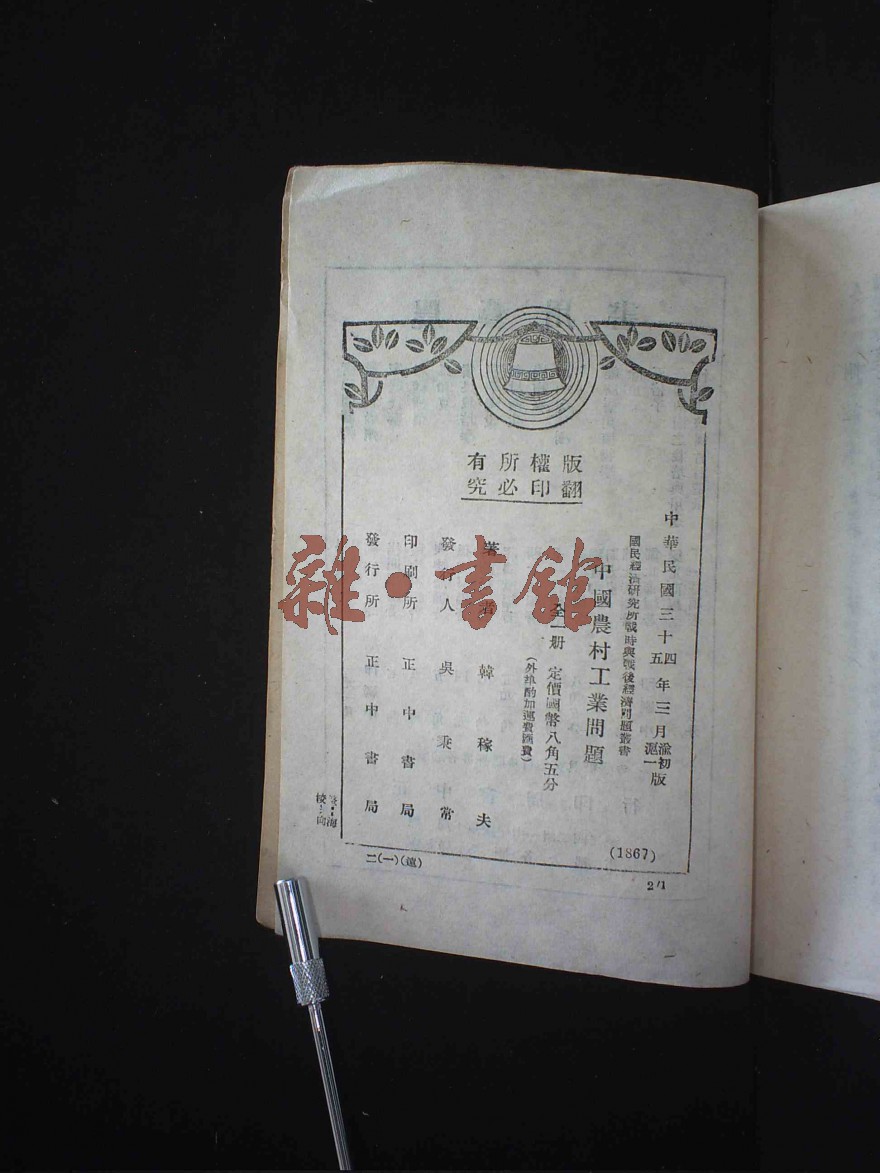 版權所有
翻印必究
中華民國三十四年三月渝初版
五 滬一
國民經濟研究所戰時與戰後經濟問題叢書
中國農村工業問題
全一册 定價國幣八角五分
(外埠酌加運費匯費)
著者 韓稼夫
發行人 吳秉常
印刷所 正中書局
發行所 正中書局
(1867)
二(一)(遠)
2/1
雜·書館